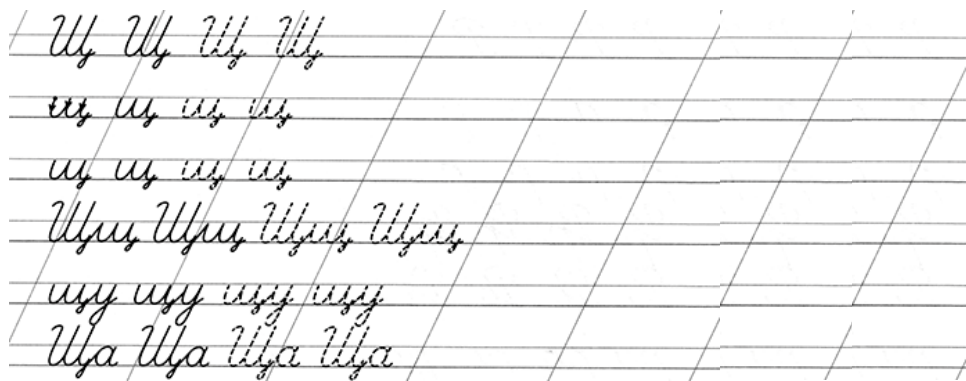 Щ Щ Щ Щ
щ щ щ щ
щ щ щ щ
Щщ Щщ Щщ Щщ
щу щу щу щу
Ща Ща Ща Ща